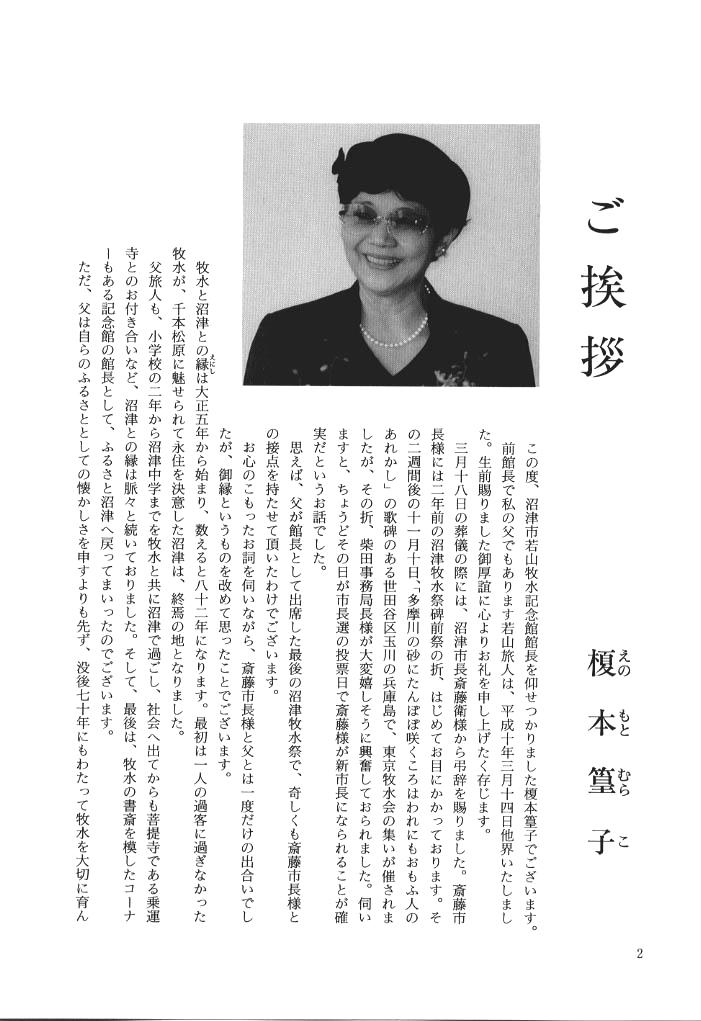 ご挨拶
榎本篁子
えの もと むら こ
この度、沼津市若山牧水記念館館長を仰せつかりました榎本篁子でございます。
前館長で私の父でもあります若山旅人は、平成十年三月十四日他界いたしまし
た。生前賜りました御厚誼に心よりお礼を申し上げたく存じます。
三月十八日の葬儀の際には、沼津市長斎藤衛様から弔辞を賜りました。斎藤市
長様には二年前の沼津牧水祭碑前祭の折、はじめてお目にかかっております。そ
の二週間後の十一月十日、「多摩川の砂にたんぽぽ咲くころはわれにもおもふ人の
あれかし」の歌碑のある世田谷区玉川の兵庫島で、東京牧水会の集いが催されま
したが、その折、柴田事務局長様が大変嬉しそうに興奮しておられました。伺い
ますと、ちょうどその日が市長選の投票日で斎藤様が新市長になられることが確
実だというお話でした。
思えば、父が館長として出席した最後の沼津牧水祭で、奇しくも斎藤市長様と
の接点を持たせて頂いたわけでございます。
お心のこもったお詞を伺いながら、斎藤市長様と父とは一度だけの出合いでし
たが、御縁というものを改めて思ったことでございます。
牧水と沼津との縁は大正五年から始まり、数えると八十二年になります。最初は一人の過客に過ぎなかった
えにし
牧水が、千本松原に魅せられて永住を決意した沼津は、終焉の地となりました。
父旅人も、小学校の二年から沼津中学までを牧水と共に沼津で過ごし、社会へ出てからも菩提寺である乗運
寺とのお付き合いなど、沼津との縁は脈々と続いておりました。そして、最後は、牧水の書斎を模したコーナ
ーもある記念館の館長として、ふるさと沼津へ戻ってまいったのでございます。
ただ、父は自らのふるさととしての懐かしさを申すよりも先ず、没後七十年にもわたって牧水を大切に育ん
2